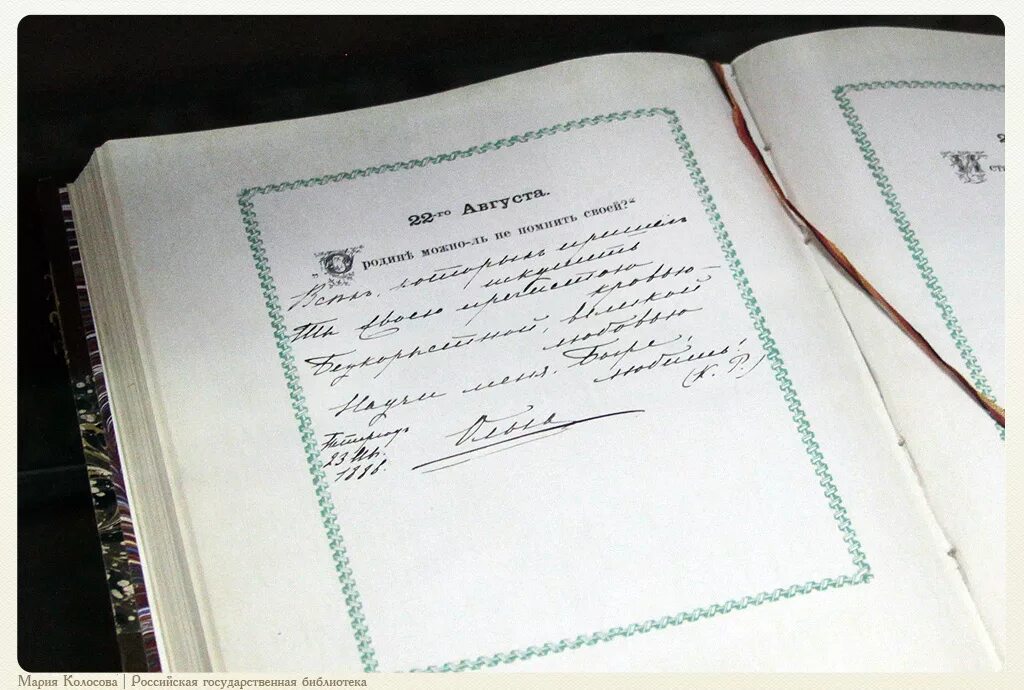 22-го Августа.
„О родинѣ можно-ль не помнить своей?“
Всѣхъ, которыхъ пришелъ
искупить
Ты своею пречистою кровью—
Безкорыстной, великой
любовью
Научи меня, Боже,
любить!
(К. Р.)
Петергофъ
23
1886.
Ольга
И ст
Мария Колосова | Российская государственная библиотека